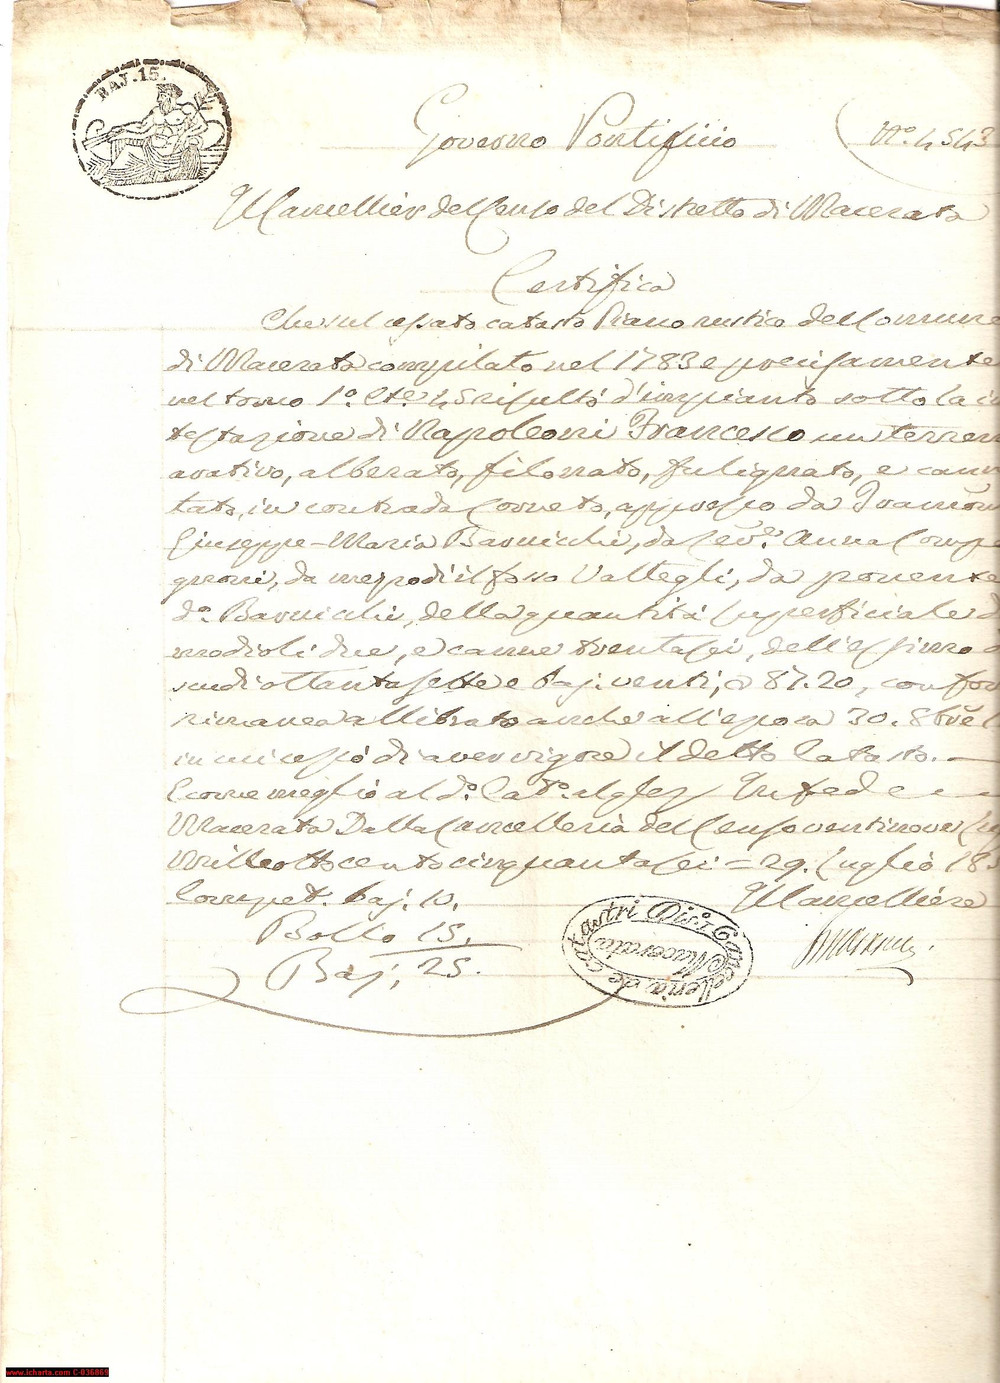 BAJ. 15.
Governo Pontificio
N.° 4543
Il Cancelliere del Censo del Distretto di Macerata
Certifica
Che sul cessato catasto Piano rustico del Comune
di Macerata compilato nel 1783 e precisamente
nel tomo 1.° Cte 45 risultò d'impianto sotto la in
testazione di Napoleoni Francesco un terren
arativo, alberato, filonato, fulignato, e cann
tato, in contrada Corneto, appresso da Tramon
Giuseppe-Maria Baruicchi, da Lev.e Anna Compa
gnoni, da mezzodì il fosso Valtegli, da ponente
d.° Baruicchi, della quantità superficiale di
modioli due, e canne trentasei, dell'estimo di
scudi ottantasette e baj. venti, 87.20, conforme
rimanea allibrato anche all'epoca 30. 8bre
in cui cessò di aver vigore il detto Catasto. —
E come meglio al d.° Cat.° al qle In fede
Macerata Dalla Cancelleria del Censo ventinove
Milleottocentocinquantasei = 29. Luglio 18
Compet. baj. 10.
Il Cancelliere
Bollo 15.
Baj. 25.
Cancelleria de Catastri Dis.i
Macerata
www.icharta.com C-036869